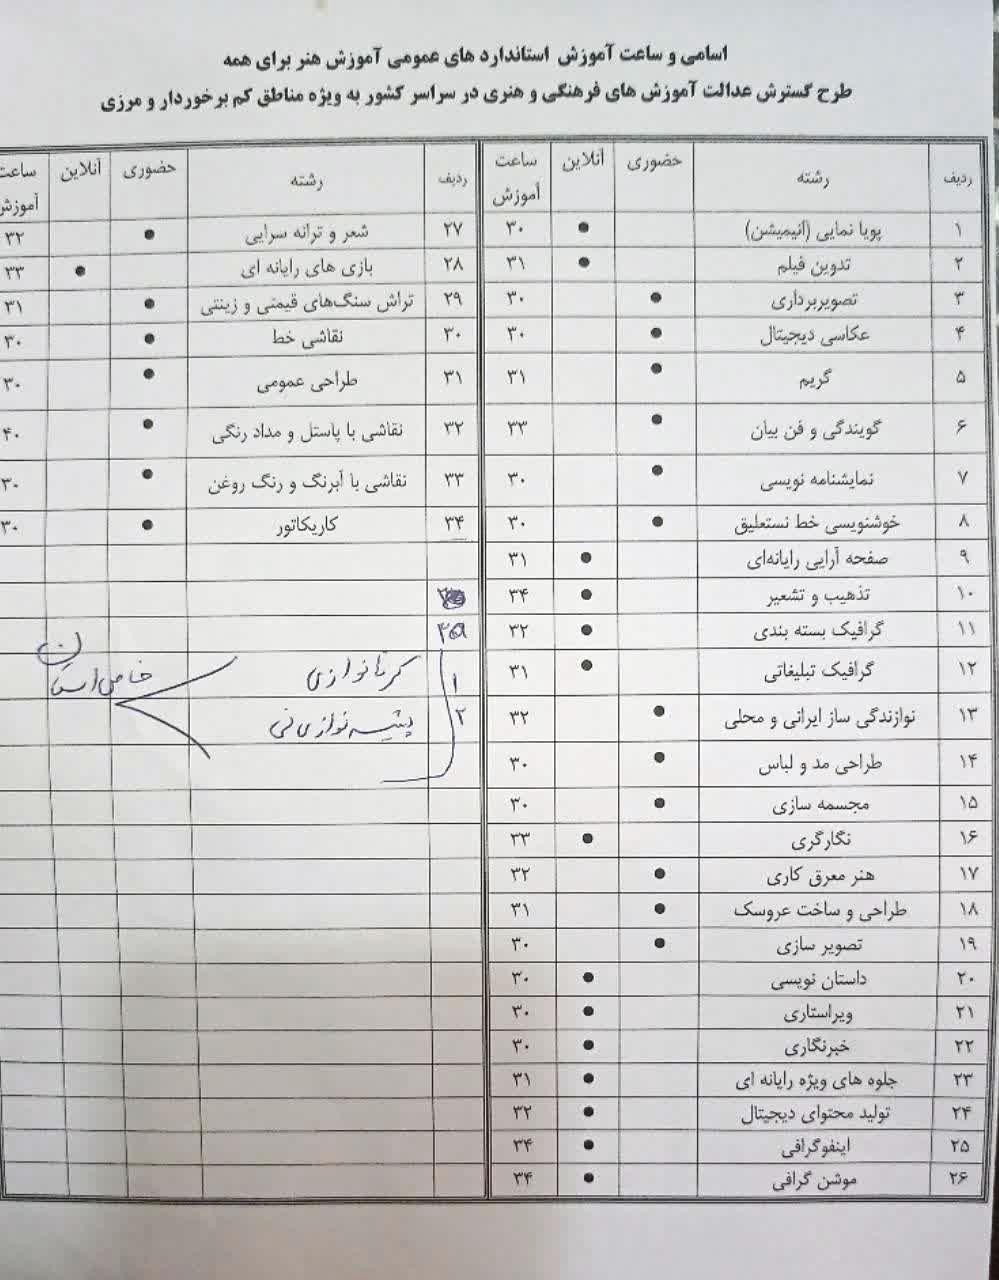 اسامی و ساعت آموزش استاندارد های عمومی آموزش هنر برای همه
طرح گسترش عدالت آموزش های فرهنگی و هنری در سراسر کشور به ویژه مناطق کم برخوردار و مرزی
ردیف رشته حضوری آنلاین ساعت آموزش
۱ پویا نمایی (انیمیشن) • ۳۰
۲ تدوین فیلم • ۳۱
۳ تصویربرداری • ۳۰
۴ عکاسی دیجیتال • ۳۰
۵ گریم • ۳۱
۶ گویندگی و فن بیان • ۳۳
۷ نمایشنامه نویسی • ۳۰
۸ خوشنویسی خط نستعلیق • ۳۰
۹ صفحه آرایی رایانه‌ای • ۳۱
۱۰ تذهیب و تشعیر • ۳۴
۱۱ گرافیک بسته بندی • ۳۲
۱۲ گرافیک تبلیغاتی • ۳۱
۱۳ نوازندگی ساز ایرانی و محلی • ۳۲
۱۴ طراحی مد و لباس • ۳۰
۱۵ مجسمه سازی • ۳۰
۱۶ نگارگری • ۳۳
۱۷ هنر معرق کاری • ۳۲
۱۸ طراحی و ساخت عروسک • ۳۱
۱۹ تصویر سازی • ۳۰
۲۰ داستان نویسی • ۳۰
۲۱ ویراستاری • ۳۰
۲۲ خبرنگاری • ۳۰
۲۳ جلوه های ویژه رایانه ای • ۳۱
۲۴ تولید محتوای دیجیتال • ۳۲
۲۵ اینفوگرافی • ۳۴
۲۶ موشن گرافی • ۳۴
ردیف رشته حضوری آنلاین ساعت آموزش
۲۷ شعر و ترانه سرایی • ۳۲
۲۸ بازی های رایانه ای • ۳۳
۲۹ تراش سنگ‌های قیمتی و زینتی • ۳۱
۳۰ نقاشی خط • ۳۰
۳۱ طراحی عمومی • ۳۰
۳۲ نقاشی با پاستل و مداد رنگی • ۴۰
۳۳ نقاشی با آبرنگ و رنگ روغن • ۳۰
۳۴ کاریکاتور • ۳۰
۱ کرنا نوازی
۲ پیشه نوازی نی
خاص استان